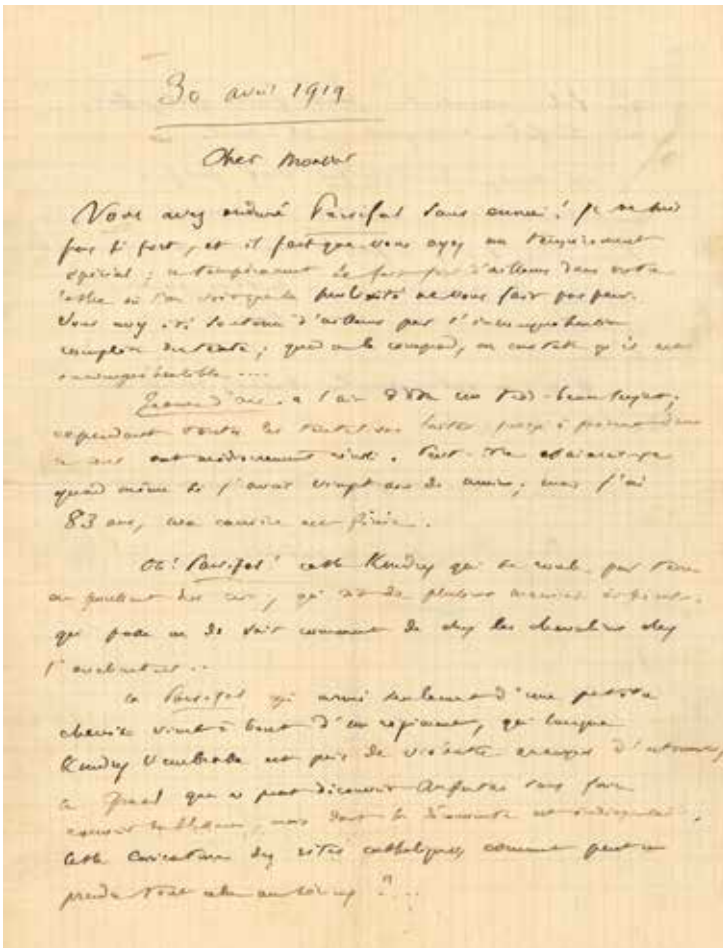 30 avril 1919
Cher Monsieur
Vous avez enduré Parsifal sans ennui! Je ne suis
pas si fort, et il faut que vous ayez un tempérament
spécial; ce tempérament se fait jour d'ailleurs dans votre
lettre où l'on voit que la prolixité ne vous fait pas peur.
Vous avez été soutenu d'ailleurs par l'incompréhension
complète du texte; quand on le comprend, on constate qu'il est
Jeanne d'Arc a l'air d'être un très-beau sujet;
cependant toutes les tentatives faites jusqu'à présent
ont médiocrement réussi. Peut-être essaierais-je
quand même si j'avais vingt ans de moins; mais j'ai
83 ans, ma carrière est finie.
Oh! Parsifal! cette Kundry qui se roule par terre
en poussant des cris, qui a de plusieurs
qui passe on ne sait comment de chez les chevaliers chez
l'enchanteur..
ce Parsifal qui armé seulement d'une petite
vient à bout d'un régiment, qui lorsque
Kundry l'embrasse est pris de violentes
ce Graal que ne peut découvrir Amfortas sans faire
mais dont la est
cette caricature des rites catholiques comment peut-on
prendre tout cela au sérieux?...